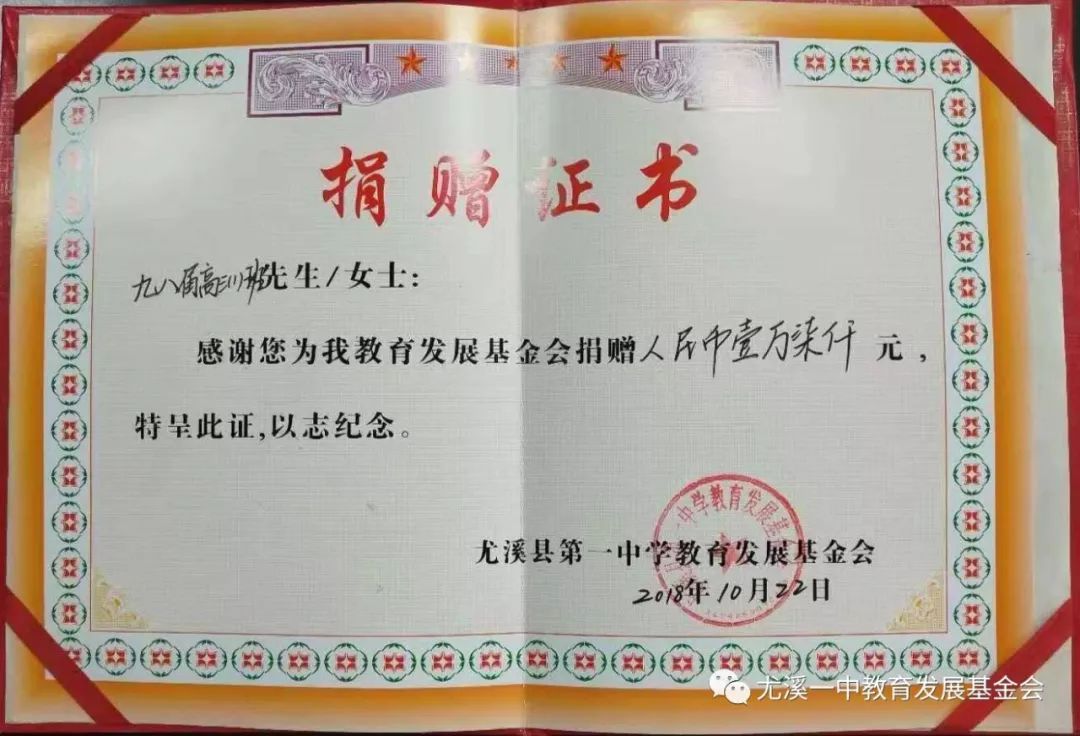 捐赠证书
九八届高三川班先生/女士:
感谢您为我教育发展基金会捐赠人民币壹万柒仟元,
特呈此证,以志纪念。
一中学教育发展基
尤溪县第一中学教育发展基金会
2018年10月22日
尤溪一中教育发展基金会